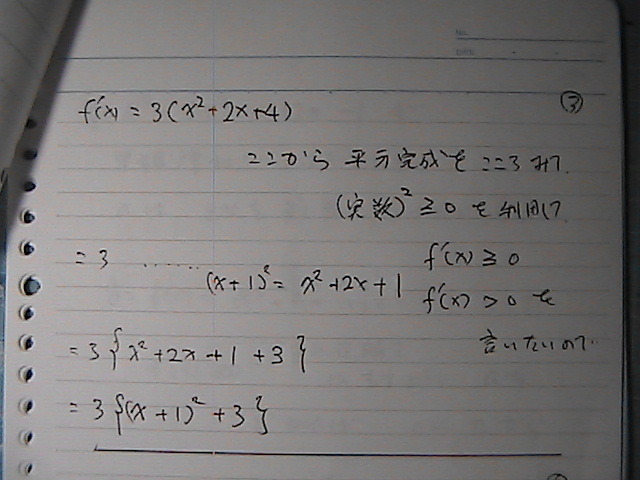 No.
DATE
③
f'(x) = 3(x²+2x+4)
ここから 平方完成を こころみて.
(実数)² ≧ 0 を 利用して
= 3 ……
f'(x) ≧ 0
(x+1)² = x²+2x+1
f'(x) > 0 を
= 3{x²+2x+1+3}
言いたいので..
= 3{(x+1)²+3}